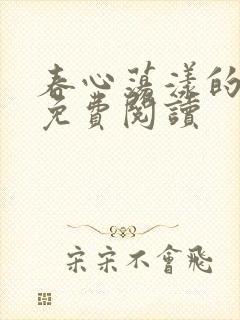 春心蕩漾的
免費閱讀
宋宋不會飛